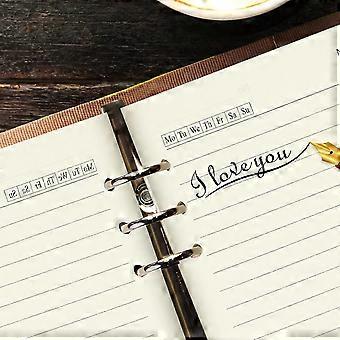 Mo Tu We Th Fr Sa Su
I love you
Mo Tu We Th Fr Sa Su